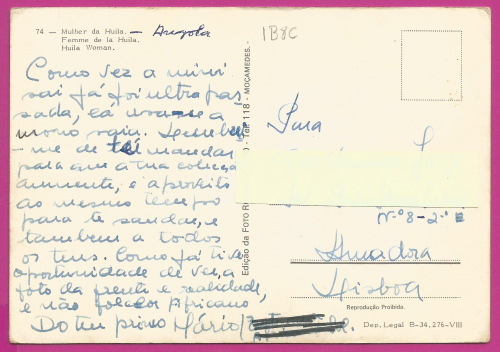 74 — Mulher da Huila. — Angola
Femme de la Huila.
Huila Woman.
1B8C
Como vez a mini
sai já foi ultrapas-
sada, cá usa-se a
mono saia. Lembrei-
-me de te mandar
para que a tua coleção
aumente, e aproveito
ao mesmo tempo
para te saudar, e
tambem a todos
os teus. Como já tive
oportunidade de ver, a
foto da frente é realidade,
e não folclor Africano,
Do teu primo Mário
Edição da Foto
Tel. 118 - MOÇAMEDES.
Para
Nº 8-2º E
Amadora
Lisboa
Reprodução Proibida.
Dep. Legal B-34,276-VIII